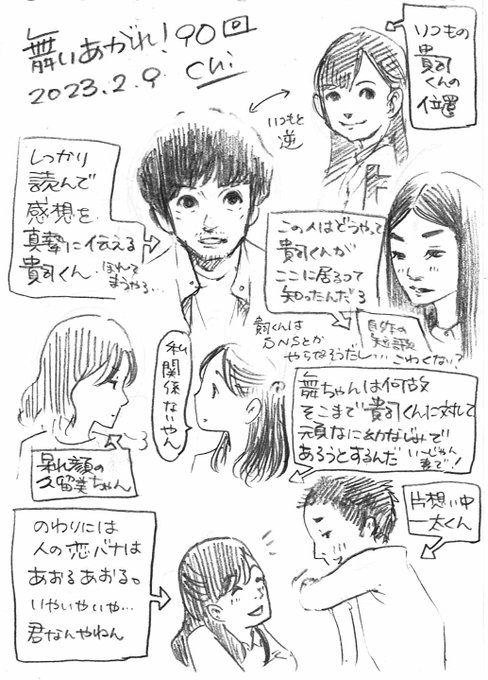 舞いあがれ！90回
2023.2.9. Chi
いつもの
貴司くんの
位置
いつもと
逆
しっかり
読んで
感想を
真摯に伝える
貴司くん.
ほれて
まうやろ…
この人はどうやって
貴司くんが
ここに居るって
知ったんだろ
貴司くんは
SNSとか
やらなそうだし…
自作の
短歌
こわくない？
私
関係
ないやん
舞ちゃんは何故
そこまで貴司くんに対して
頑なに幼なじみで
あろうとするんだ
いーじゃん
妻で！
呆れ顔の
久留美ちゃん
片想い中
一太くん
のわりには
人の恋バナは
あおるあおる。
いやいやいや…
君なんやねん